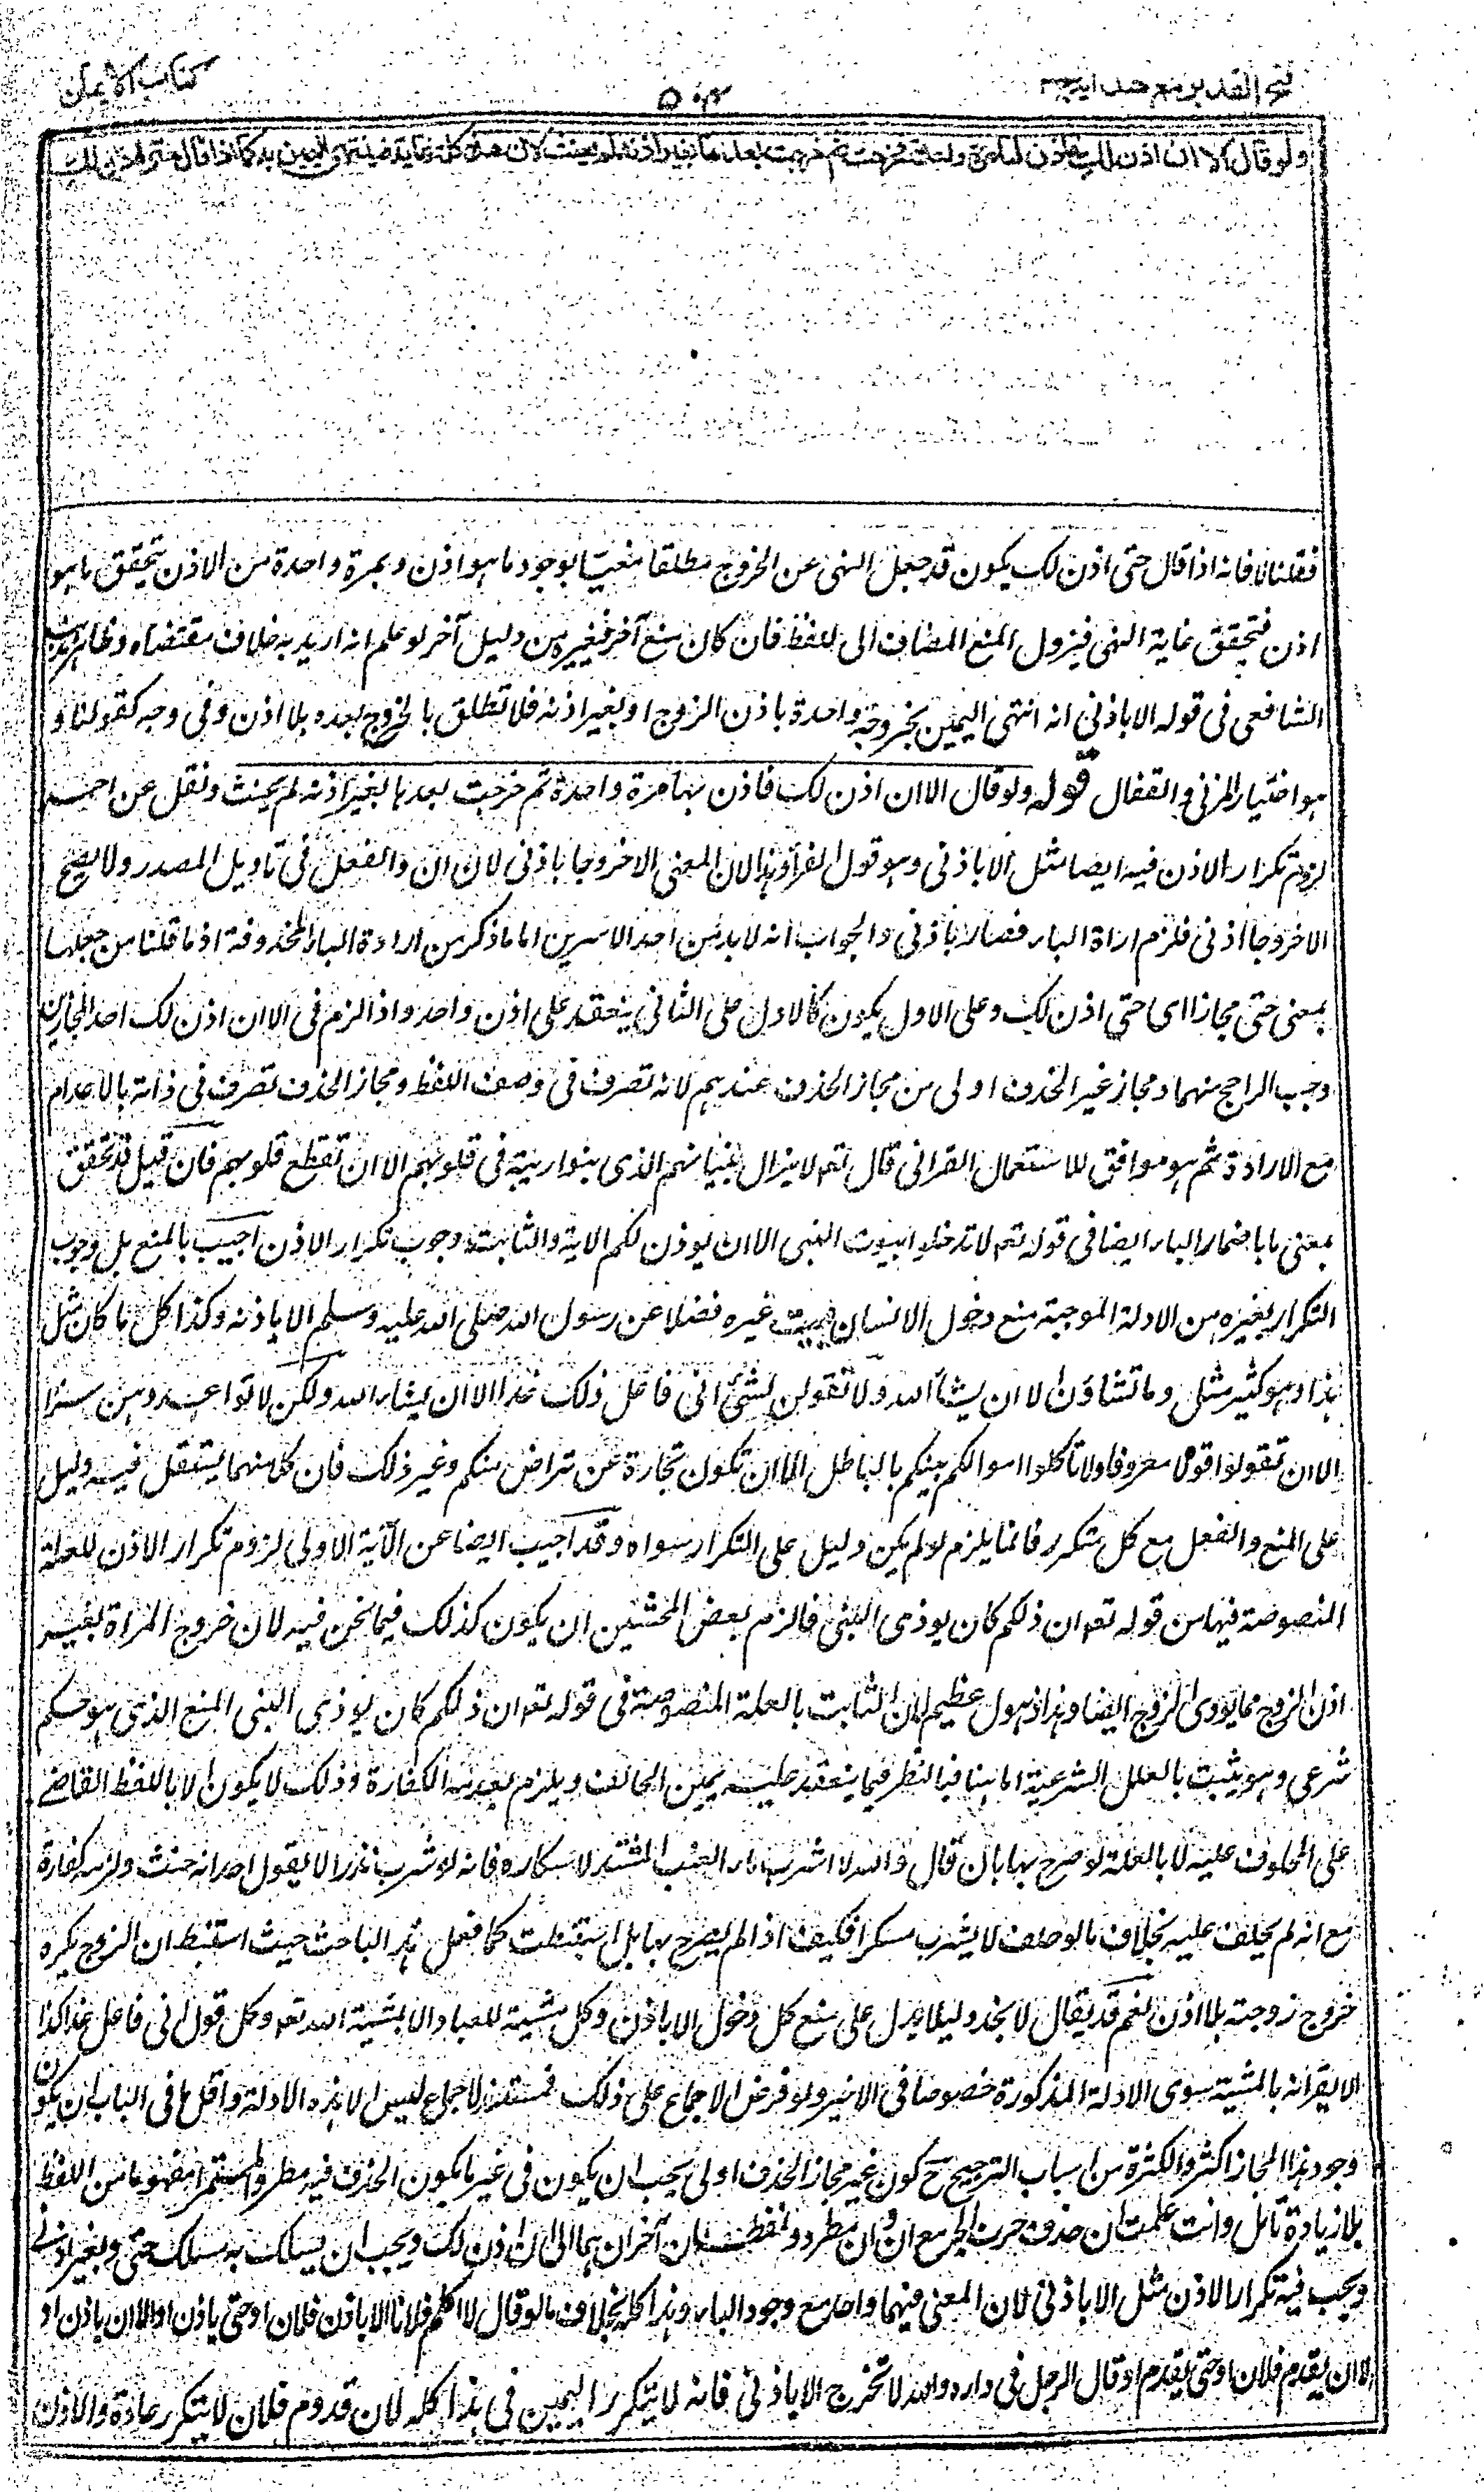 فتح القدیر مع ھدایہ ج ۲
۵۰۴
کتاب الایمان
ولو قال الا ان اذن لك فاذن لها مرة واحدة فخرجت ثم خرجت بعدها بغير اذنه لم يحنث لان هذه كلمة غاية فينتهي اليمين به كما اذا قال حتى اذن لك
فقلنا لا فانه اذا قال حتى اذن لك يكون قد جعل النهى عن الخروج مطلقا مغيا بوجود ما هو اذن وبمرة واحدة من الاذن يتحقق ما هو
اذن فتحقق غاية النهى فيزول المنع المضاف الى اللفظ فان كان منع آخر فبغيره من دليل آخر لو علم انه اريد به خلاف مقتضاه وظاهر مذهب
الشافعى فى قوله الا باذنى انه انتهى اليمين بخروجة واحدة باذن الزوج او بغير اذنه فلا تطلق بالخروج بعده بلا اذن وفى وجه كقولنا و
هو اختيار المزنى والقفال قوله ولو قال الا ان اذن لك فاذن بها مرة واحدة ثم خرجت بعدها بغير اذنه لم يحنث ونقل عن احمد
لزوم تكرار الاذن فيه ايضا مثل الا باذنى وهو قول الفراء وهذا لان المعنى الا خروجا باذنى لان ان والفعل فى تاويل المصدر ولا يصح
الا خروجا اذنى فلزم ارادة الباء فصار الا باذنى والجواب انه لا بد من احد الامرين اما ما ذكر من ارادة الباء المحذوفة او ما قلنا من جعلها
بمعنى حتى مجازا اى حتى اذن لك وعلى الاول يكون كالاول على الثانى ينعقد على اذن واحد واذا لزم فى الا ان اذن لك احد المجازين
وجب الراجح منهما ومجاز غير الحذف اولى من مجاز الحذف عندهم لانه تصرف فى وصف اللفظ ومجاز الحذف تصرف فى ذاته بالاعدام
مع الارادة ثم هو موافق للاستعمال القرانى قال تعه لا يزال بنيانهم الذى بنوا ريبة فى قلوبهم الا ان تقطع قلوبهم فان قيل قد تحقق
بمعنى ما باضمار الباء ايضا فى قوله تعه لا تدخلوا بيوت النبى الا ان يوذن لكم الاية والثابت وجوب تكرار الاذن اجيب بالمنع بل وجوب
التكرار بغيره من الادلة الموجبة منع دخول الانسان بيت غيره فضلا عن رسول الله صلى الله عليه وسلم الا باذنه وكذا كل ما كان مثل
هذا وهو كثير مثل وما تشاؤن الا ان يشاء الله ولا تقولن لشئ انى فاعل ذلك غدا الا ان يشاء الله ولكن لا تواعدوهن سرا
الا ان تقولوا قولا معروفا ولا تاكلوا اموالكم بينكم بالباطل الا ان تكون تجارة عن تراض منكم وغير ذلك فان كلا منهما يستقل فيه دليل
على المنع والفعل مع كل متكرر فانما يلزم لو لم يكن دليل على التكرار سواه وقد اجيب ايضا عن الآية الاولى لزوم تكرار الاذن للعلة
المنصوصة فيها من قوله تعه ان ذلكم كان يوذى النبى فالزم بعض المحشين ان يكون كذلك فيما نحن فيه لان خروج المراة بغير
اذن الزوج مما يوذى الزوج ايضا وهذا ذهول عظيم لان الثابت بالعلة المنصوصة فى قوله تعه ان ذلكم كان يوذى النبى المنع الذى هو حكم
شرعى وهو يثبت بالعلل الشرعية اما هنا فبالنظر فيما ينعقد عليه يمين الحالف ويلزم بعدمه الكفارة وذلك لا يكون الا باللفظ القاضى
على المحلوف عليه لا بالعلة لو صرح بها بان قال والله لا اشرب ماء العنب المشتد لاسكاره فانه لو شرب نذرا لا يقول احد انه حنث ولزمه كفارة
مع انه لم يحلف عليه بخلاف ما لو حلف لا يشرب مسكرا فكيف اذا لم يصرح بها بل استنبطت كما فعل هذا الباحث حيث استنبط ان الزوج يكره
خروج زوجته بلا اذن نعم قد يقال لا نجد دليلا يدل على منع كل دخول الا باذن وكل مشية للعباد الا بمشية الله تعه وكل قول انى فاعل غدا كذا
الا بقرانه بالمشية سوى الادلة المذكورة خصوصا فى الاخير ولو فرض الاجماع على ذلك فمستند الاجماع ليس الا هذه الادلة واقل ما فى الباب ان يكون
وجود هذا المجاز اكثر والكثرة من اسباب الترجيح ح كون غير مجاز الحذف اولى يجب ان يكون فى غير ما يكون الحذف فيه مطردا مستمرا مفهوما من اللفظ
بلا زيادة تامل وانت علمت ان حذف حرف الجر مع ان وان مطرد ولفظتان آخران هما الا ان اذن لك ويجب ان يسلك به مسلك حتى وبغير اذنى
ويجب فيه تكرار الاذن مثل الا باذنى لان المعنى فيهما واحد مع وجود الباء وهذا كله بخلاف ما لو قال لا اكلم فلانا الا باذن فلان او حتى ياذن او الا ان ياذن او
الا ان يقدم فلان او حتى يقدم او قال الرجل فى داره والله لا تخرج الا باذنى فانه لا يتكرر اليمين فى هذا كله لان قدوم فلان لا يتكرر عادة والاذن